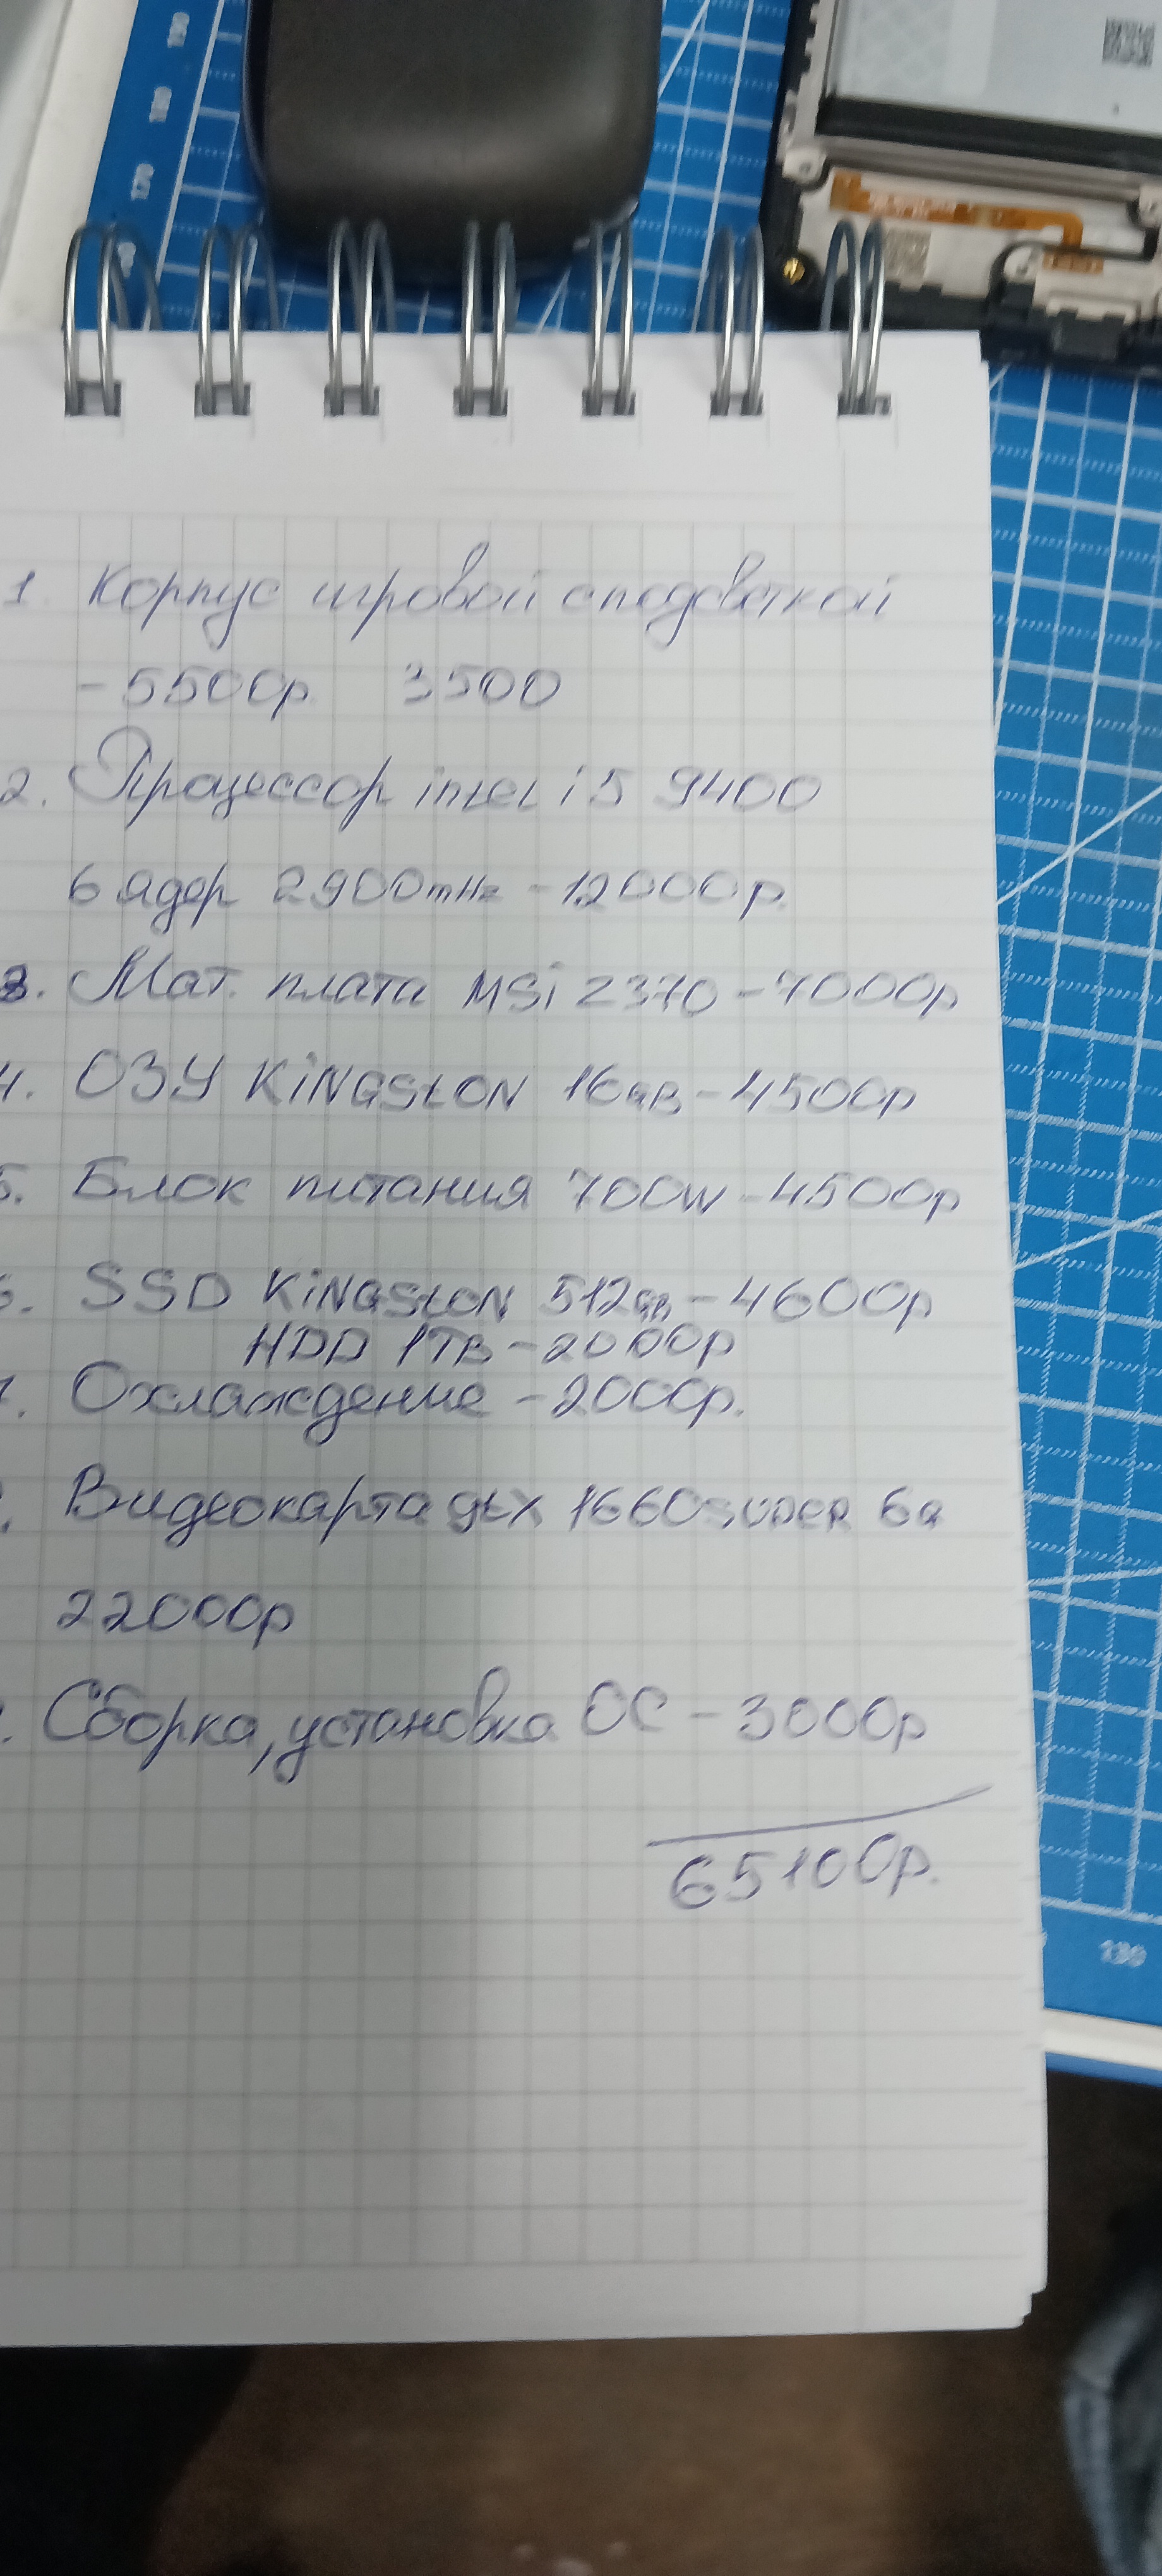 190
180
170
1. Корпус игровой с подсветкой
- 5500р. 3500
2. Процессор intel i5 9400
6 ядер 2900mHz - 12000р.
3. Мат. плата MSi Z370 - 7000р
4. ОЗУ KiNGStON 16GB - 4500р
5. Блок питания 700W - 4500р
6. SSD KiNGStON 512GB - 4600р
HDD 1TB - 2000р
7. Охлаждение - 2000р.
. Видеокарта gtx 1660SUPER 6G
22000р
. Сборка, установка ОС - 3000р
65100р.
130